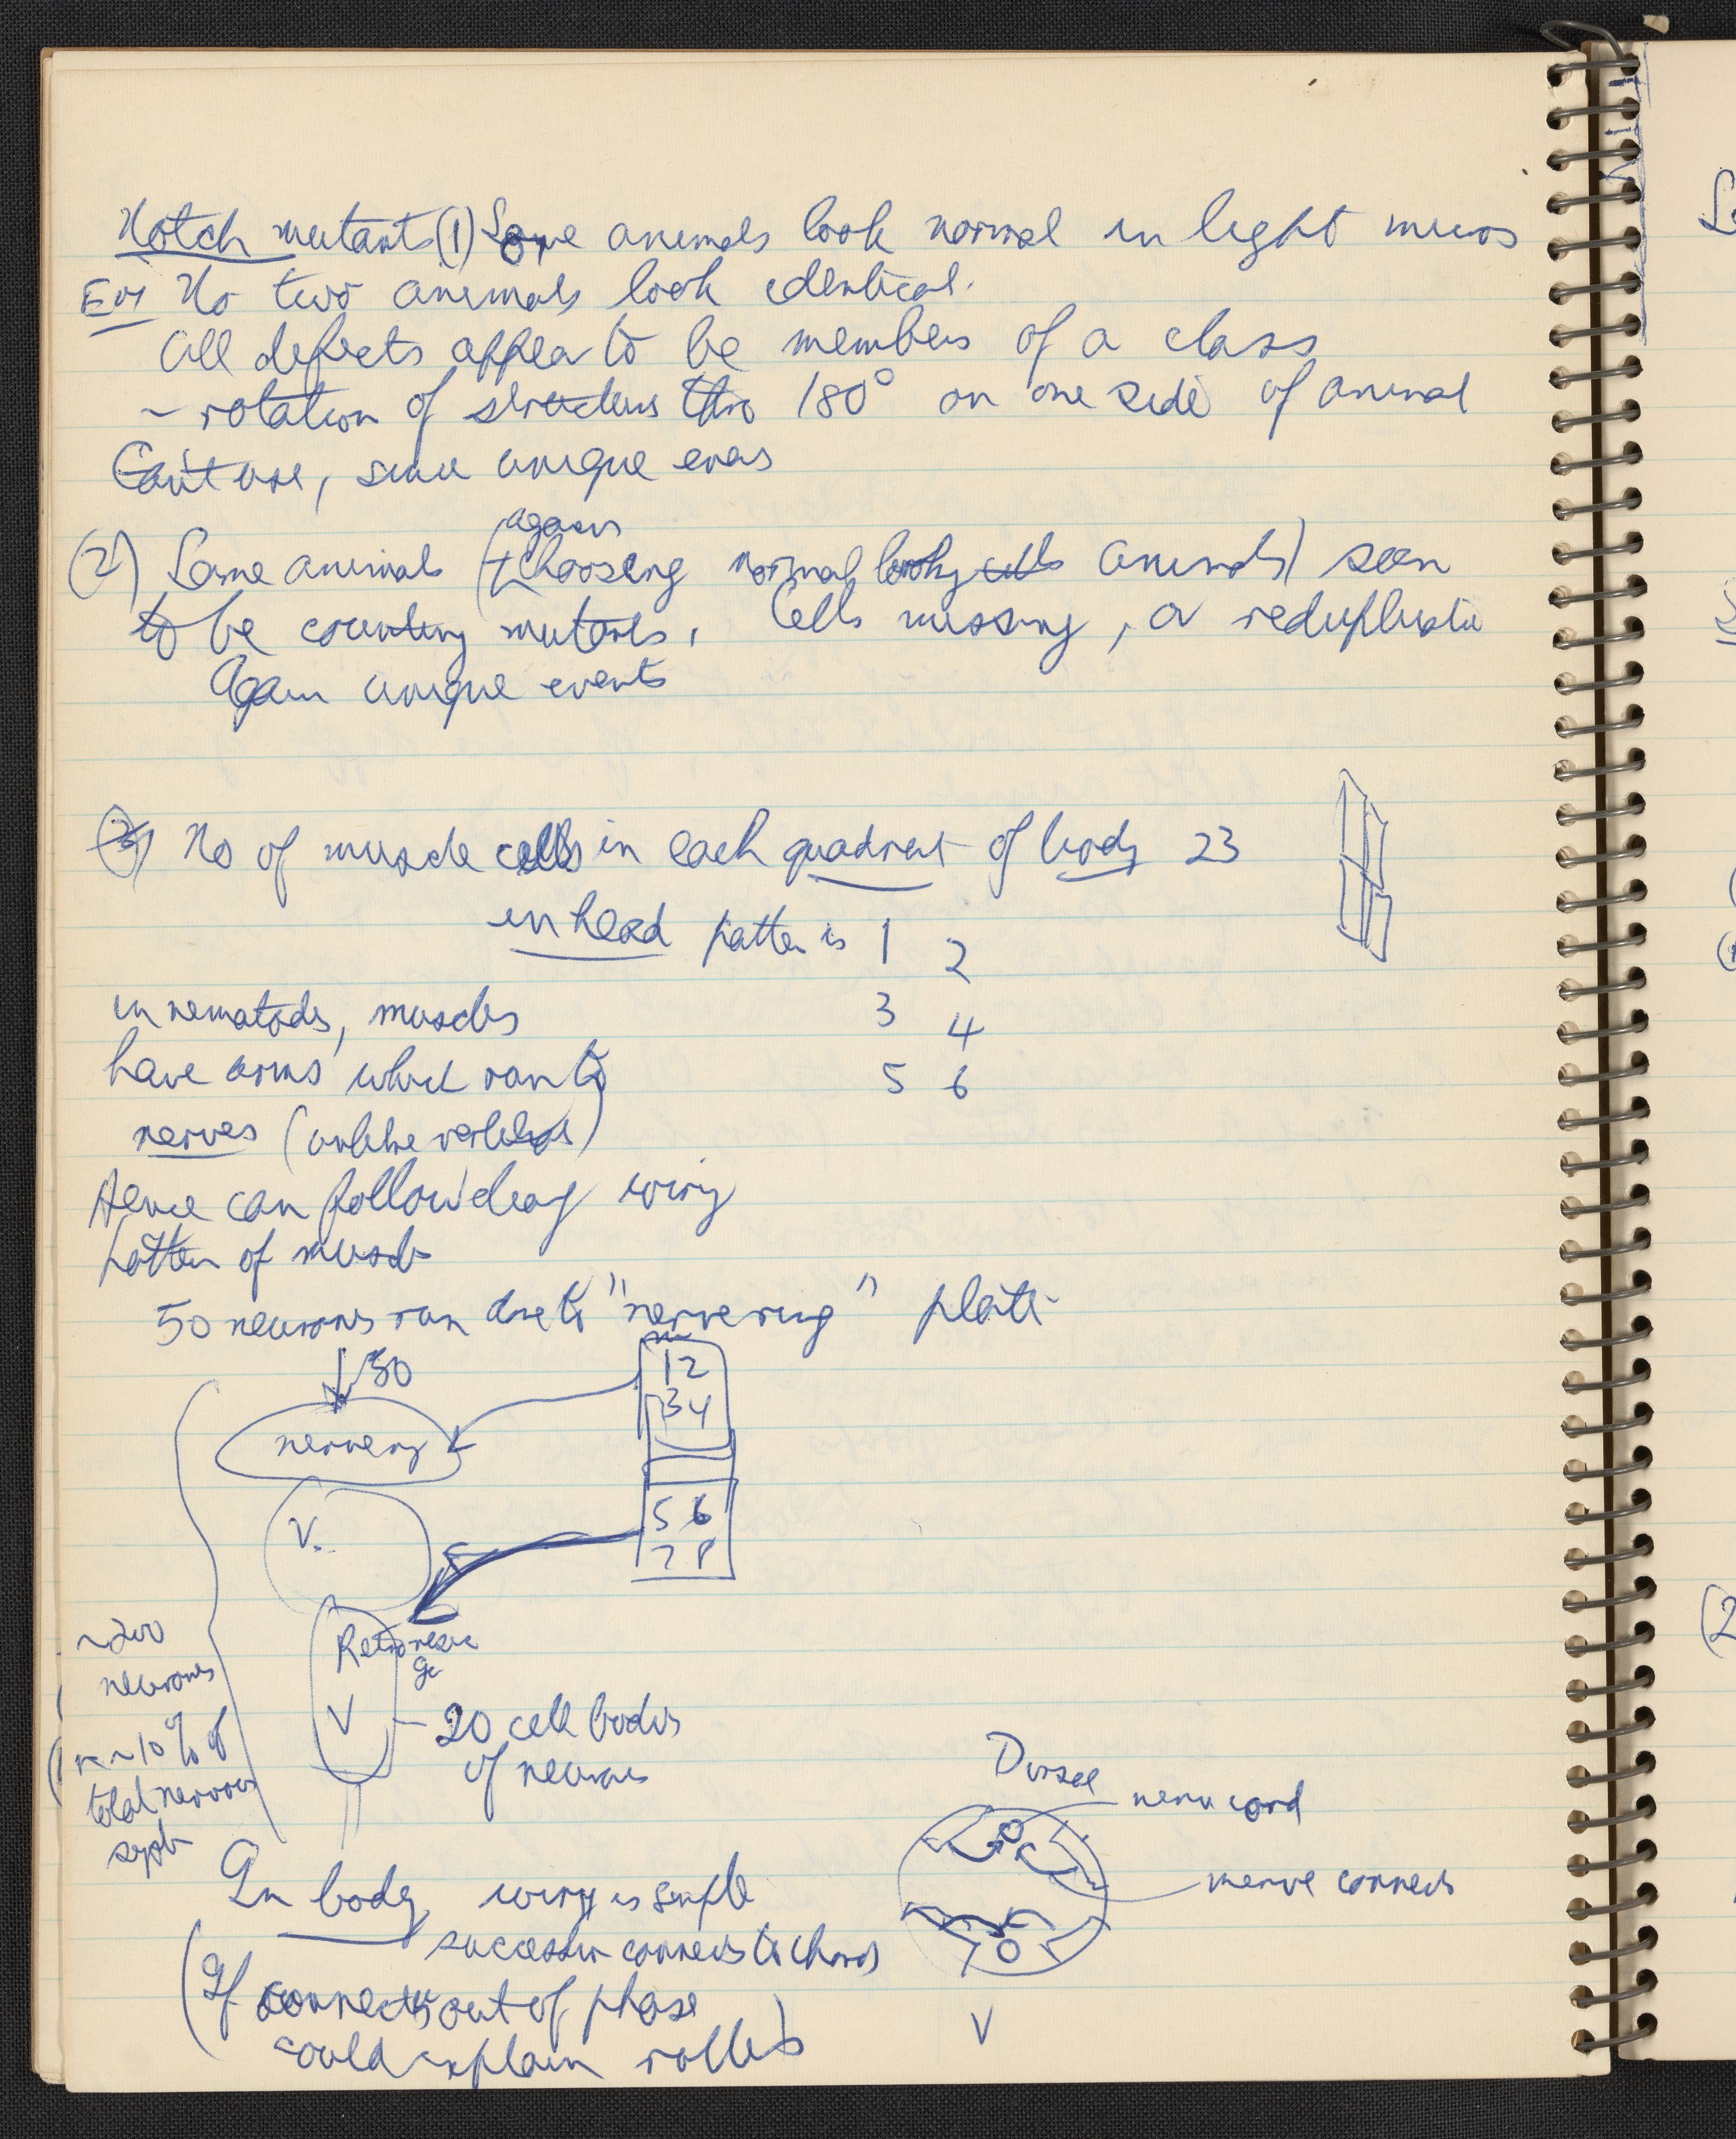 Notch mutant (1) Some animals look normal in light micros
EM No two animals look identical.
All defects appear to be members of a class
~ rotation of structures thro 180° on one side of animal
Can't use, since unique
again
(2) Some animals (choosing normal looking cells animals) seem
to be counting mutants. Cells missing, or
Again unique events
(3) No of muscle cells in each quadrant of body 23
in head pattern is 1 2
3 4
5 6
in nematodes, muscles
have arms which run to
nerves (unlike vertebrates)
Hence can follow wiring
pattern of muscle
50 neurones run to "nerve ring" plate
↓ 50
nerve ring
V.
1 2
3 4
5 6
7 8
~200
neurones
~10% of
total nervous
system
V
20 cell bodies
of neurones
Dorsal
nerve cord
nerve connects
V
In body wiring is simple
connects to
(If connects out of phase
could explain rollers)